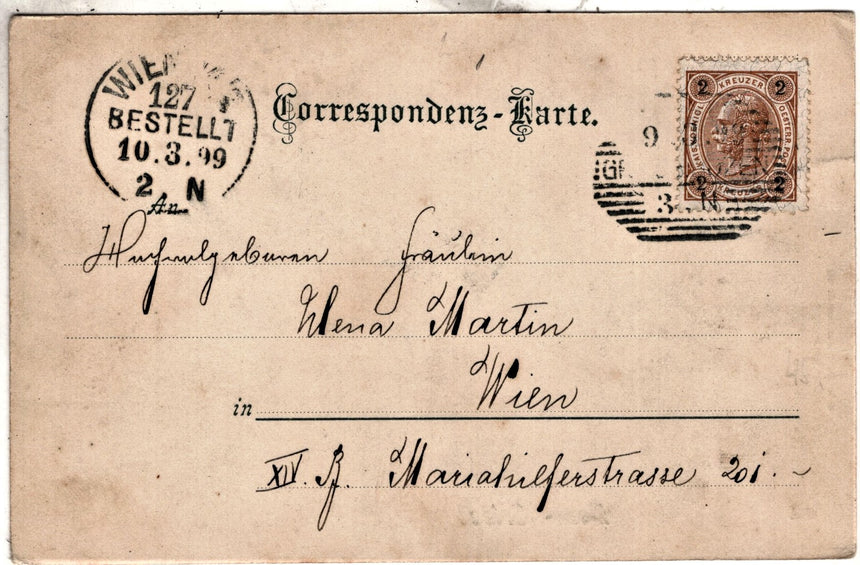 WIEN
127
BESTELLT
10.3.99
2. N
Correspondenz-Karte.
2 KREUZER 2
2 KREUZER 2
9
3 N
An
Hochwolgeboren Fräulein
Martin
in Wien
XIV. Bz. Mariahilferstrasse 201.